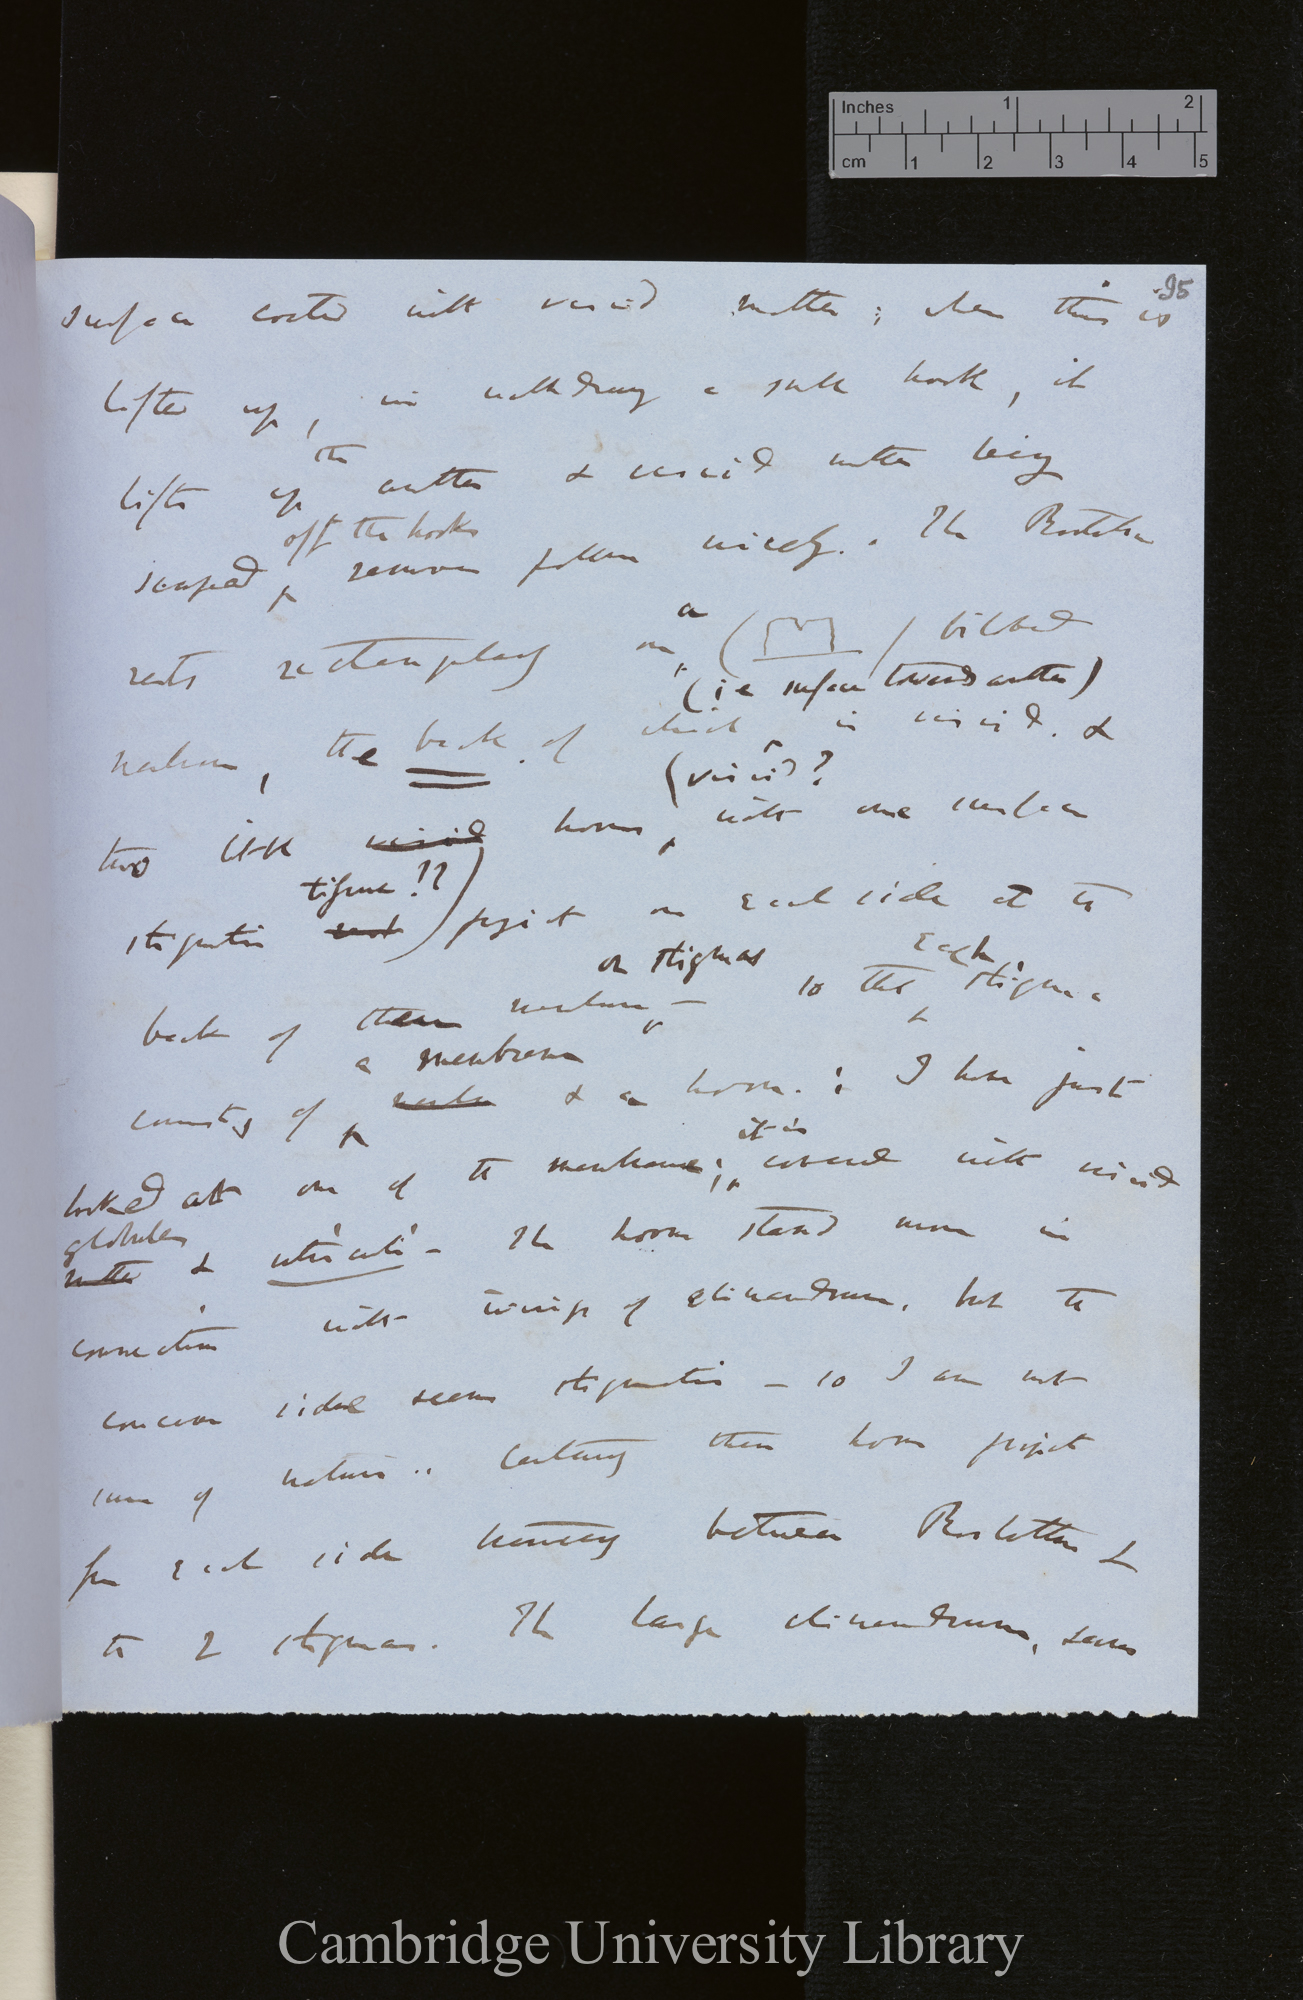 Inches 1 2
cm 1 2 3 4 5
95
surface coated with viscid matter; when this is
lifted up, in withdrawing a small hook, it
lifts up the anther & viscid matter being
scraped off the hooks removes pollen nicely.. The Rostellum
rests rectangularly on a ( / bilobed
(ie surface towards anther)
the back of which is viscid. &
two little viscid horns, (viscid? with one surface
stigmatic tissue!!) project on each side at the
back of them on stigmas — so the each stigma
consists of a membrane & a horn. : I have just
looked at one of the membranes; it is covered with viscid
globules
matter & utriculi — The horns stand more in
connection with wings of clinandrum, but the
concave side seems stigmatic — so I am not
sure of nature.. Certainly these horns project
from each side between Rostellum &
the 2 stigmas. The large clinandrum, seems
Cambridge University Library